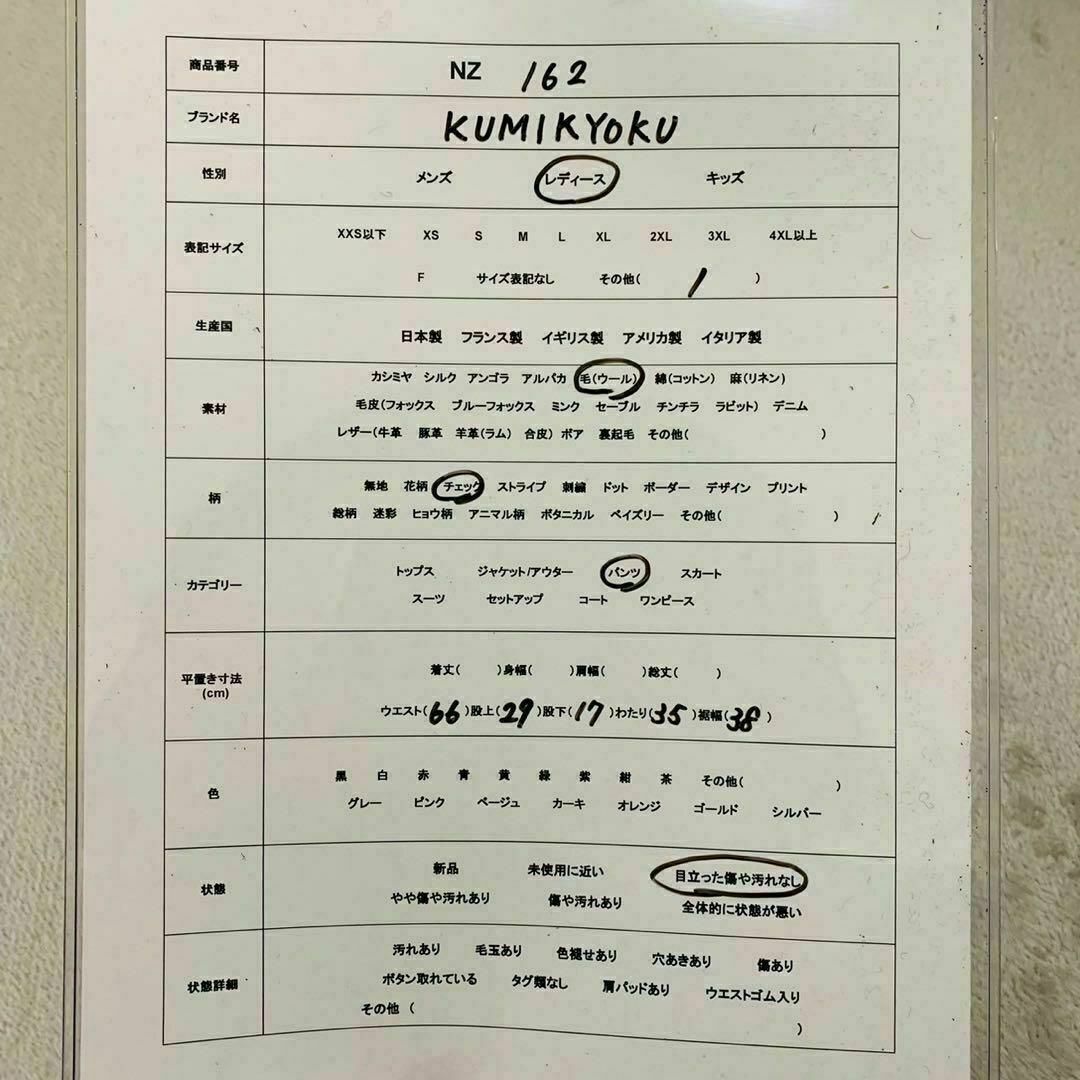 商品番号 NZ 162
ブランド名 KUMIKYOKU
性別 メンズ レディース キッズ
表記サイズ XXS以下 XS S M L XL 2XL 3XL 4XL以上
F サイズ表記なし その他( 1 )
生産国 日本製 フランス製 イギリス製 アメリカ製 イタリア製
素材 カシミヤ シルク アンゴラ アルパカ 毛(ウール) 綿(コットン) 麻(リネン)
毛皮(フォックス ブルーフォックス ミンク セーブル チンチラ ラビット) デニム
レザー(牛革 豚革 羊革(ラム) 合皮) ボア 裏起毛 その他( )
柄 無地 花柄 チェック ストライプ 刺繍 ドット ボーダー デザイン プリント
総柄 迷彩 ヒョウ柄 アニマル柄 ボタニカル ペイズリー その他( )
カテゴリー トップス ジャケット/アウター パンツ スカート
スーツ セットアップ コート ワンピース
平置き寸法
(cm)
着丈( )身幅( )肩幅( )総丈( )
ウエスト(66)股上(29)股下(17)わたり(35)裾幅(38)
色 黒 白 赤 青 黄 緑 紫 紺 茶 その他( )
グレー ピンク ベージュ カーキ オレンジ ゴールド シルバー
状態 新品 未使用に近い 目立った傷や汚れなし
やや傷や汚れあり 傷や汚れあり 全体的に状態が悪い
状態詳細 汚れあり 毛玉あり 色褪せあり 穴あきあり 傷あり
ボタン取れている タグ類なし 肩パッドあり ウエストゴム入り
その他 ( )